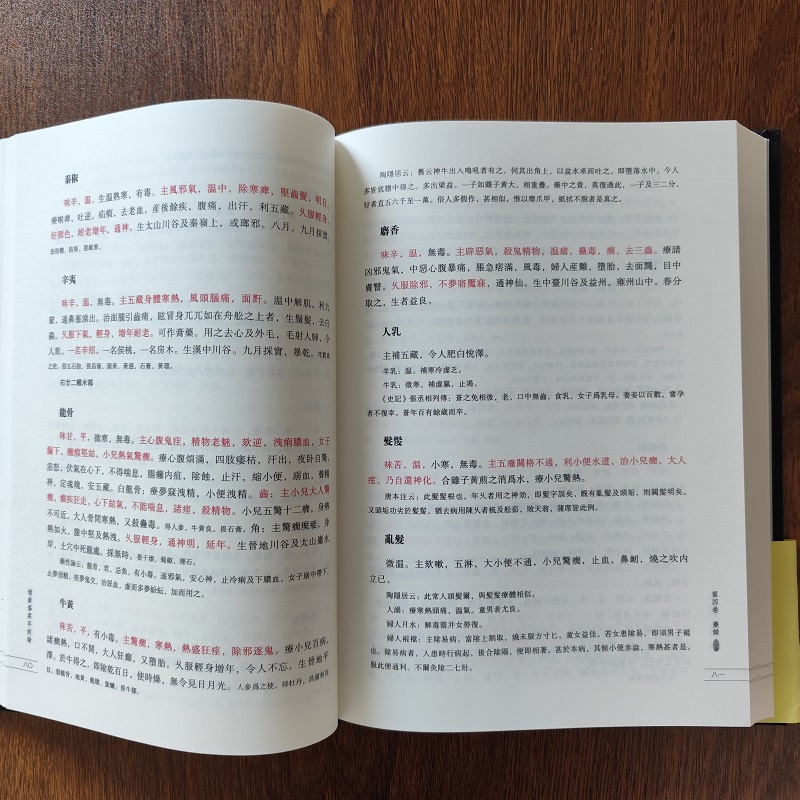 秦椒
味辛，温，生温熟寒，有毒。主風邪氣，温中，除寒痺，堅齒髮，明目。
療喉痺，吐逆，疝瘕，去老血，産後餘疾，腹痛，出汗，利五藏。久服輕身，
好顔色，耐老增年，通神。生太山川谷及秦嶺上，或瑯邪。八月、九月採實。
辛夷
味辛，温，無毒。主五藏身體寒熱，風頭腦痛，面䵟。温中解肌，利九
竅，通鼻塞涕出。治面腫引齒痛，眩冒身兀兀如在舟船之上者，生鬚髮，去白
蟲。久服下氣，輕身，增年耐老。可作膏藥。用之去心及外毛，毛射人肺，令
人欬。一名辛矧，一名侯桃，一名房木。生漢中川谷。九月採實，暴乾。
右廿二種木部
龍骨
味甘，平，微寒，無毒。主心腹鬼疰，精物老魅，欬逆，洩痢膿血，女子
漏下，癥瘕堅結，小兒熱氣驚癇。療心腹煩滿，四肢痿枯，汗出，夜卧自驚，
恚怒，伏氣在心下，不得喘息，腸癰内疽，陰蝕，止汗，縮小便，溺血，養精
神，定魂魄，安五藏。白龍骨：療夢寐洩精，小便洩精。齒：主小兒大人驚
癇，癲疾狂走，心下結氣，不能喘息，諸痙，殺精物。小兒五驚十二癇，身熱
不可近，大人骨間寒熱，又殺蠱毒。得人參、牛黄良，畏石膏。角：主驚癇瘈瘲，身
熱如火，腹中堅及熱洩。久服輕身，通神明，延年。生晉地川谷及太山巖水
岸，土穴中死龍處。採無時。畏干漆、蜀椒、理石。
藥性論云：龍骨，君，忌魚，有小毒。逐邪氣，安心神，止冷痢及下膿血，女子崩中帶下，
止夢泄精，夜夢鬼交，治尿血，虚而多夢紛紜，加而用之。
牛黄
味苦，平，有小毒。主驚癇，寒熱，熱盛狂痙，除邪逐鬼。療小兒百病，
諸癇熱，口不開，大人狂癲，又墮胎。久服輕身增年，令人不忘。生晉地平
澤。於牛得之，即陰乾百日，使時燥，無令見日月光。人參爲之使。得牡丹、菖蒲利耳
目，惡龍骨、地黄、龍膽、蜚蠊，畏牛膝。
增廣傷寒卒病論
八〇
陶隱居云：舊云神牛出入鳴吼者有之，伺其出角上，以盆水承而吐之，即墮落水中。今人
多皆就膽中得之。多出梁益。一子如雞子黄大，相重疊。藥中之貴，莫復過此，一子及三二分，
好者直五六千至一萬。俗人多假作，甚相似，惟以摩爪甲，舐拭不脱者是真之。
麝香
味辛，温，無毒。主辟惡氣，殺鬼精物，温瘧，蠱毒，癇，去三蟲。療諸
凶邪鬼氣，中惡心腹暴痛，脹急痞滿，風毒，婦人産難，墮胎，去面䵳，目中
膚翳。久服除邪，不夢寤魘寐，通神仙。生中臺川谷及益州、雍州山中。春分
取之，生者益良。
人乳
主補五藏，令人肥白悦澤。
羊乳：温，補寒冷虚乏。
牛乳：微寒，補虚羸，止渴。
《史記》張丞相列傳：蒼之免相後，老，口中無齒，食乳，女子爲乳母。妻妾以百數，嘗孕
者不復幸。蒼年百有餘歲而卒。
髮髲
味苦，温，小寒，無毒。主五癃關格不通，利小便水道，治小兒癇，大人
痙。乃自還神化。合雞子黄煎之消爲水，療小兒驚熱。
唐本注云：此髮髲根也，年久者用之神効，即髮字誤矣，既有亂髮及頭垢，則闕髮明矣。
又頭垢功劣於髮髲，猶去病用陳久者梳及船茹，敗天翁，蒲席皆此例。
亂髮
微温。主欬嗽，五淋，大小便不通，小兒驚癇，止血，鼻衄，燒之吹内
立已。
陶隱居云：此常人頭髮爾，與髮髲療體相似。
人溺：療寒熱頭痛，温氣。童男者尤良。
婦人月水：解毒箭并女勞復。
婦人裩襠：主陰易病，當陰上割取，燒末服方寸匕。童女益佳。若女患陰易，即須男子裩
也。陰易病者，人患時行病起，後合陰陽，便即相著，甚於本病，其候小便赤澁，寒熱甚者是，
服此便通利。不爾灸陰二七壯。
第四卷　藥録
八一